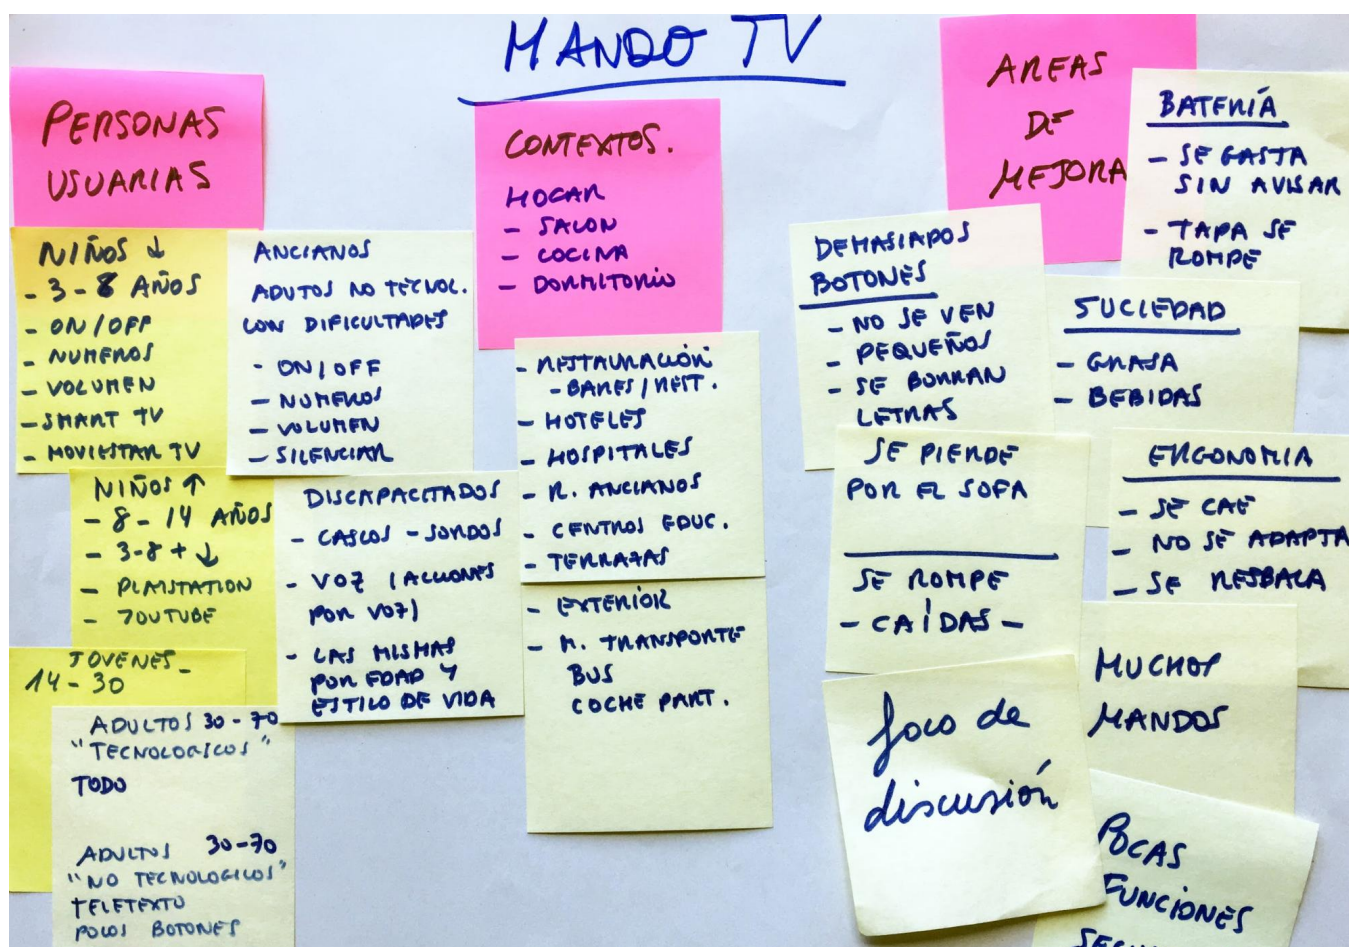 MANDO TV
PERSONAS
USUARIAS
NIÑOS ↓
- 3 - 8 AÑOS
- ON/OFF
- NUMEROS
- VOLUMEN
- SMART TV
- MOVIESTAR TV
NIÑOS ↑
- 8 - 14 AÑOS
- 3-8 + ↓
- PLAYSTATION
- YOUTUBE
JOVENES -
14 - 30
ADULTOS 30 - 70
"TECNOLOGICOS"
TODO
ADULTOS 30-70
"NO TECNOLOGICOS"
TELETEXTO
POCOS BOTONES
ANCIANOS
ADUTOS NO TECNOL.
CON DIFICULTADES
- ON/OFF
- NUMEROS
- VOLUMEN
- SILENCIAR
DISCAPACITADOS
- CASCOS - SORDOS
- VOZ (ACCIONES
POR VOZ)
- LAS MISMAS
POR EDAD Y
ESTILO DE VIDA
CONTEXTOS.
HOGAR
- SALON
- COCINA
- DORMITORIO
- RESTAURACIÓN
- BARES / REST.
- HOTELES
- HOSPITALES
- R. ANCIANOS
- CENTROS EDUC.
- TERRAZAS
- EXTERIOR
- M. TRANSPORTE
BUS
COCHE PART.
AREAS
DE
MEJORA
BATERÍA
- SE GASTA
SIN AVISAR
- TAPA SE
ROMPE
DEMASIADOS
BOTONES
- NO SE VEN
- PEQUEÑOS
- SE BORRAN
LETRAS
SUCIEDAD
- GRASA
- BEBIDAS
SE PIERDE
POR EL SOFA
SE ROMPE
- CAÍDAS -
ERGONOMIA
- SE CAE
- NO SE ADAPTA
- SE RESBALA
foco de
discusión
MUCHOS
MANDOS
POCAS
FUNCIONES